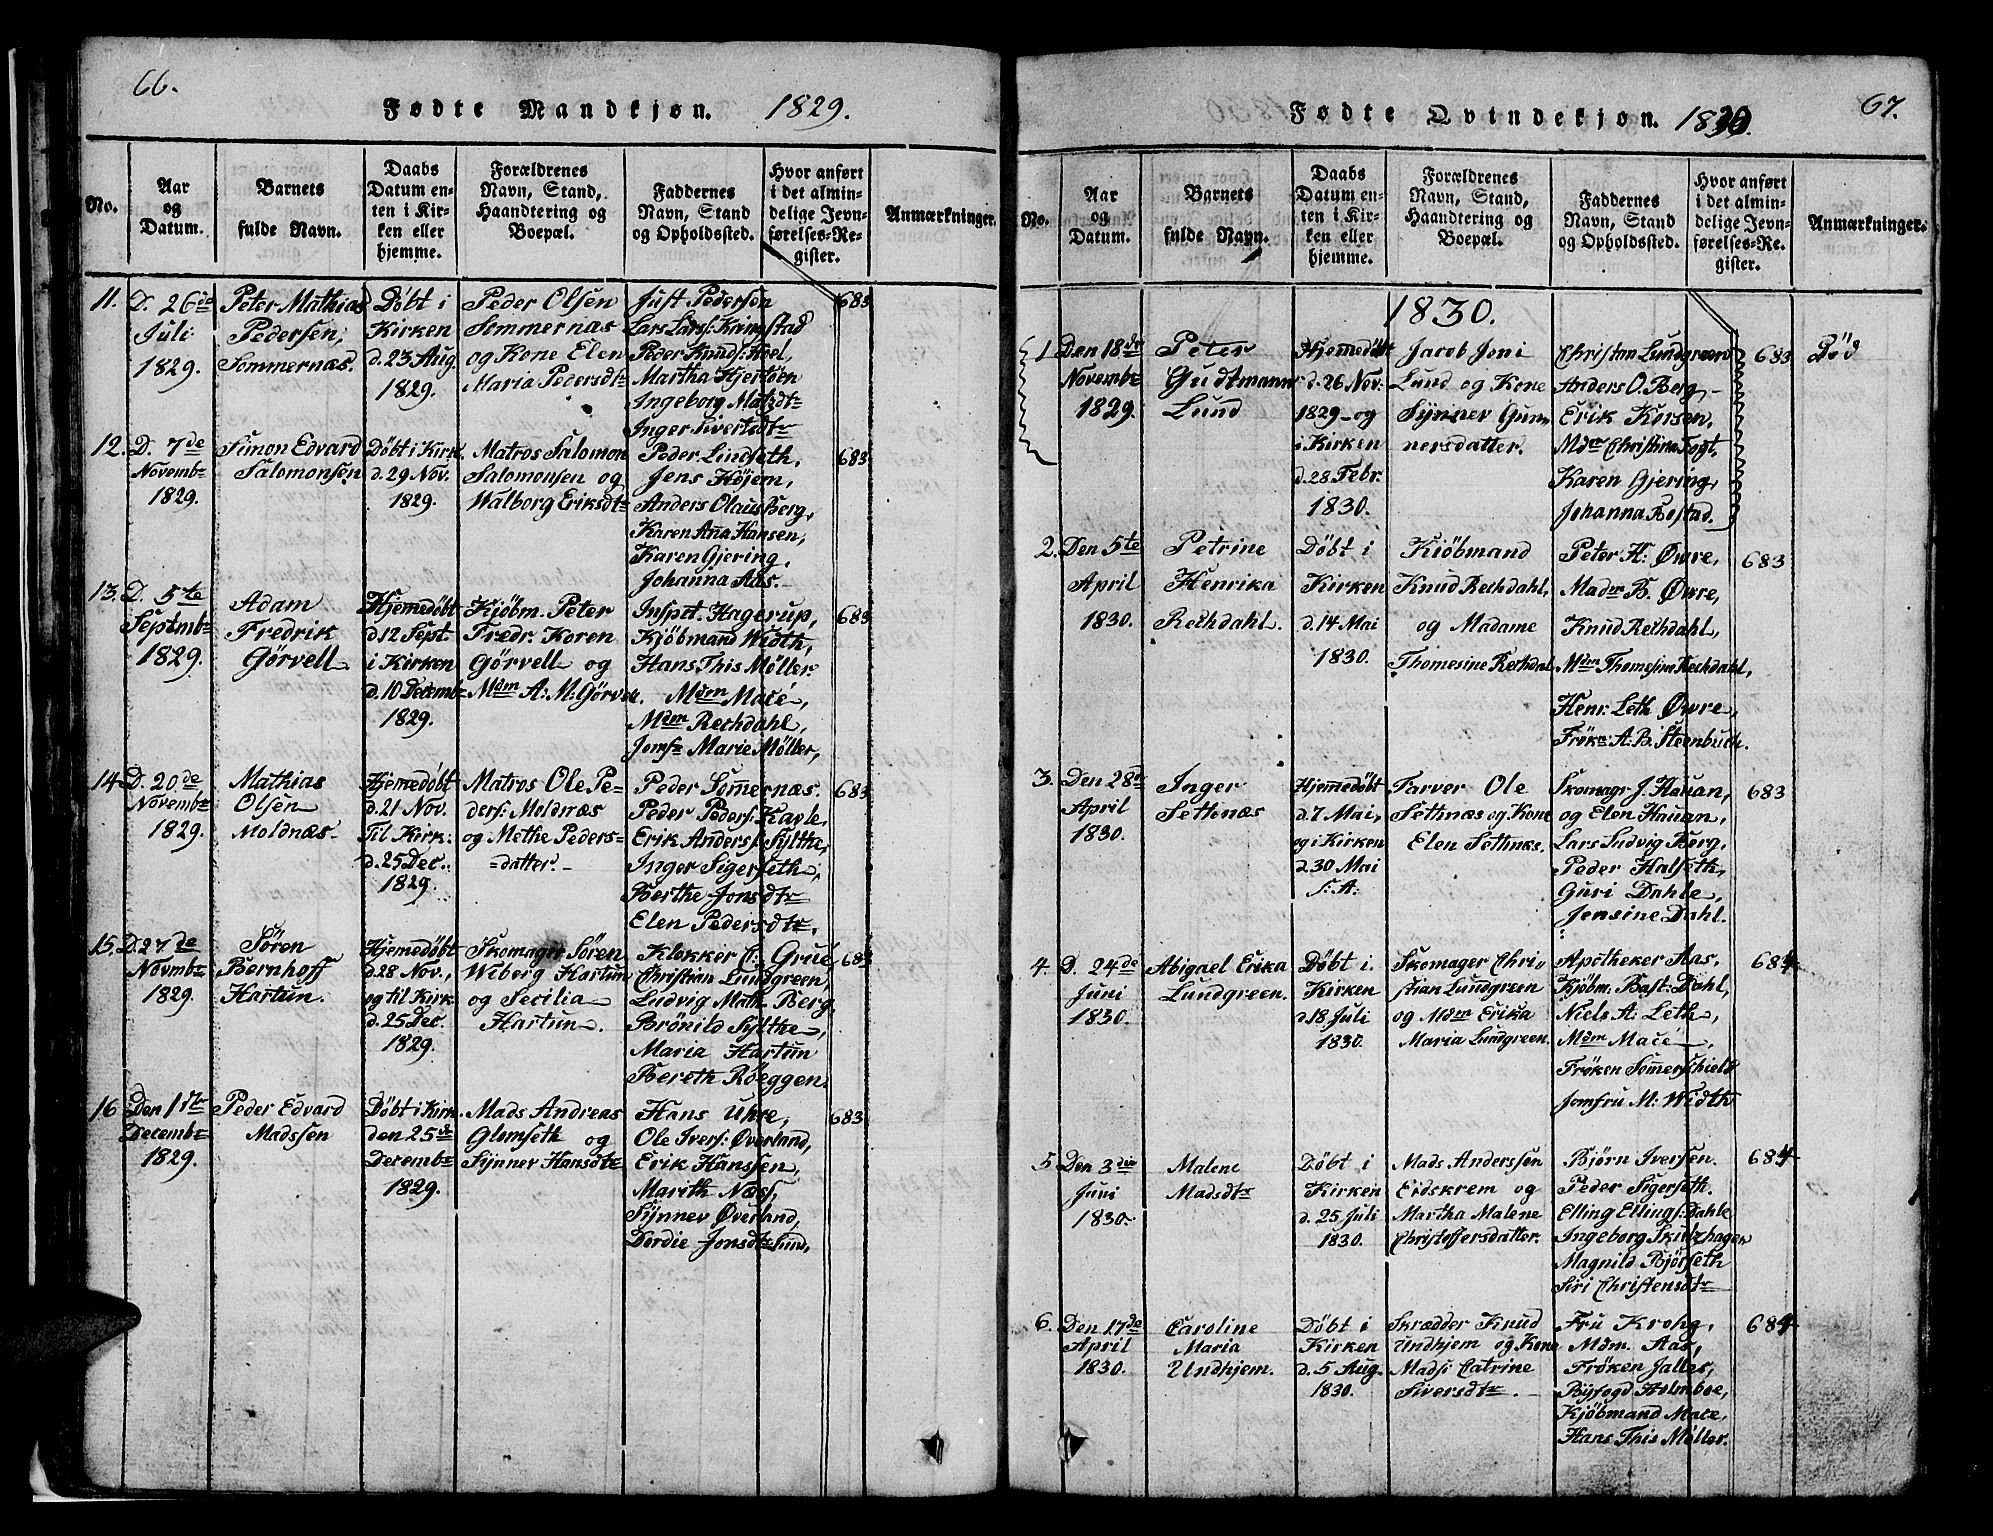 66.
Fødte Mandkjøn. 1829.
No.
Aar
og
Datum.
Barnets
fulde Navn.
Daabs
Datum en-
ten i Kir-
ken eller
hjemme.
Forældrenes
Navn, Stand,
Haandtering og
Boepæl.
Faddernes
Navn, Stand
og Opholdssted.
Hvor anført
i det almin-
delige Jevn-
førelses-Re-
gister.
Anmærkninger.
11.
D. 26de
Juli
1829.
Peter Mathias
Pedersen,
Sommernæs.
Døbt i
Kirken
d. 23 Aug.
1829.
Peder Olsen
Sommernæs
og Kone Elen
Maria Pedersdtr
Just Pedersen
Lars Lars: Kringstad
Peder Knuds: Hoel,
Martha Hjertøen
Ingeborg Matzdtr
Inger Sivertsdtr
683
12.
D. 7de
Novembr
1829.
Simon Edvard
Salomonsen
Døbt i Kirk.
d. 29 Nov.
1829.
Matros Salomon
Salomonsen og
Walborg Eriksdtr
Peder Lindseth,
Jens Höjem,
Anders Olaus Berg,
Karen Ana Hansen,
Karen Gjering,
Johanna Aas.
683
13.
D. 5te
Septmbr
1829.
Adam
Fredrik
Görvell
Hjemedøbt
d. 12 Sept.
i Kirken
d. 10 Decembr
1829.
Kiöbm. Peter
Fredr. Koren
Görvell og
Mdm A: M: Görvell.
Inspct. Hagerup,
Kjöbmand Width,
Hans This Möller
Mdm Macé,
Mdm Rechdahl,
Jomfr Marie Möller,
683
14.
D. 20de
Novembr
1829.
Mathias
Olsen
Moldnæs.
Hjemedøbt
d. 21 Nov.
Til Kirk:
d. 25 Dec.
1829.
Matros Ole Pe-
ders: Moldnæs
og Methe Peders-
=datter.
Peder Somernæs.
Peder Peders: Kavle,
Erik Anders: Sylthe,
Inger Sigerseth,
Berthe Jonsdtr
Elen Pedersdtr.
683
15.
D. 27de
Novmbr
1829.
Søren
Bernhoff
Hartun.
Hjemedøbt
d. 28 Nov.,
og til Kirk.
d. 25 Dec.
1829.
Skomager Søren
Wiborg Hartun
og Secilia
Hartun.
Klokker C: Grue
Christian Lundgreen,
Ludvig Math. Berg,
Brönild Sylthe,
Maria Hartun
Bereth Röeggen.
683
16
Den 1ste
Decembr
1829.
Peder Edvard
Madssen
Døbt i Kirk.
den 25de
Decembr
1829.
Mads Andreas
Glomseth og
Synner Hansdtr
Hans Uhre,
Ole Ivers: Øverland,
Erik Hanssen,
Marith Næss,
Synner Øverland,
Dordie Jonsdtr Lund,
683
67.
Fødte Qvindekjøn. 1830.
No.
Aar
og
Datum.
Barnets
fulde Navn.
Daabs
Datum en-
ten i Kir-
ken eller
hjemme.
Forældrenes
Navn, Stand,
Haandtering og
Boepæl.
Faddernes
Navn, Stand
og Opholdssted.
Hvor anført
i det almin-
delige Jevn-
førelses-Re-
gister.
Anmærkninger.
1830.
1
Den 18de
Novembr
1829.
Peter
Gudtmann
Lund
Hjemedøbt
d. 26 Nov:
1829 og
i Kirken
d. 28 Febr.
1830.
Jacob Joni
Lund og Kone
Synner Gun-
nersdatter.
Christan Lundgreen
Anders O. Berg,
Erik Korsen,
Mdm Christina Fogt,
Karen Gjering,
Johanna Bostad.
683
Død
2.
Den 5te
April
1830.
Petrine
Henrika
Rechdahl.
Døbt i
Kirken
d. 14 Mai
1830.
Kiöbmand
Knud Rechdahl,
og Madame
Thomesine Rechdal
Peter H: Øwre,
Madm B. Øwre,
Knud Rechdahl,
Mdm Thomesine Rechdahl,
Henr: Leth Øwre,
Frøkn A. B. Steenbuch.
683
3.
Den 28de
April
1830.
Inger
Sethnæs
Hjemedøbt
d. 7 Mai,
og i Kirken
d. 30 Mai
s: A:
Farver Ole
Sethnæs og Kone
Elen Sethnæs.
Skomagr J. Hauan,
og Elen Hauan,
Lars Ludvig Berg,
Peder Halseth,
Guri Dahle,
Jensine Dahl.
683
4.
D. 24de
Juni
1830.
Abigael Erika
Lundgreen.
Døbt i
Kirken
d. 18 Juli
1830.
Skomager Chri-
stian Lundgreen
og Mdm Erika
Maria Lundgreen.
Apotheker Aas,
Kjöbm: Bast: Dahl,
Niels A: Leth,
Mdm Macé,
Frøken Somerschield
Jomfru M: Width
684
5
Den 3die
Juni
1830.
Malene
Madsdtr
Døbt i
Kirken
d. 25 Juli
1830.
Mads Anderssen
Eidskrem og
Martha Malene
Christoffersdatter.
Bjørn Iversen.
Peder Sigerseth.
Elling Ellings: Dahle
Ingeborg Skultzhagen
Magnild Bjørseth
Siri Christensdtr
684
6.
Den 17de
April
1830.
Caroline
Maria
Undhjem.
Døbt i
Kirken
d. 5 Aug.
1830.
Skrædder Knud
Undhjem og Kone
Madsi Catrine
Siversdtr.
Fru Krohg,
Mdm. Aas,
Frøken Jalles,
Byfogd Holmboe,
Kjöbmand Mace,
Hans This Möller.
684